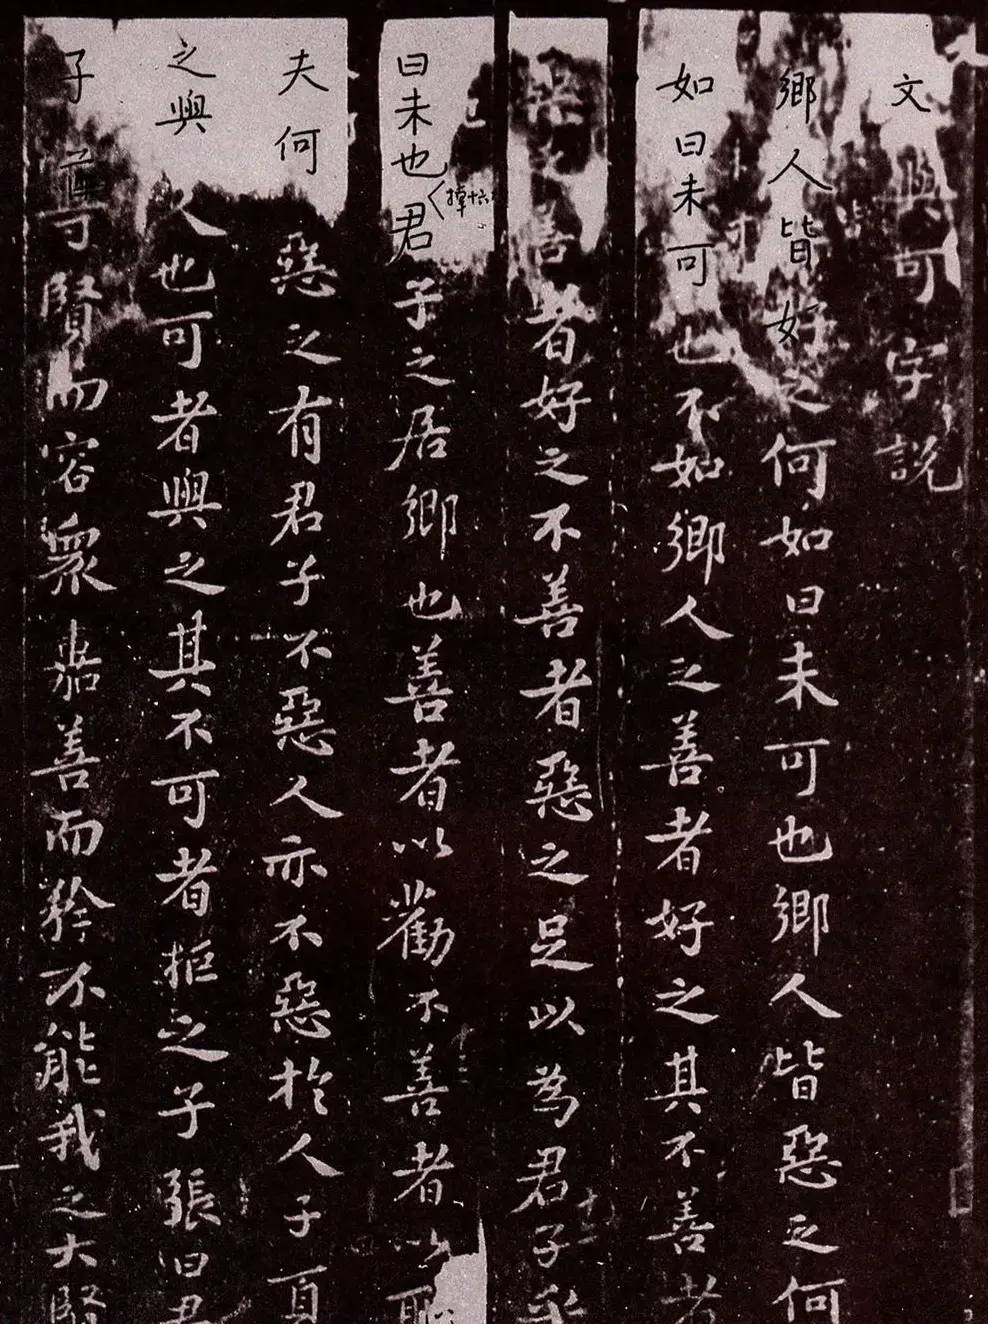 文與可字說
鄉人皆好之何如曰未可也鄉人皆惡之何
如曰未可也不如鄉人之善者好之其不善者
惡之善者好之不善者惡之足以為君子乎
曰未也君子之居鄉也善者以勸不善者以恥
夫何惡之有君子不惡人亦不惡於人子夏
之與人也可者與之其不可者拒之子張曰君
子尊賢而容衆嘉善而矜不能我之大賢